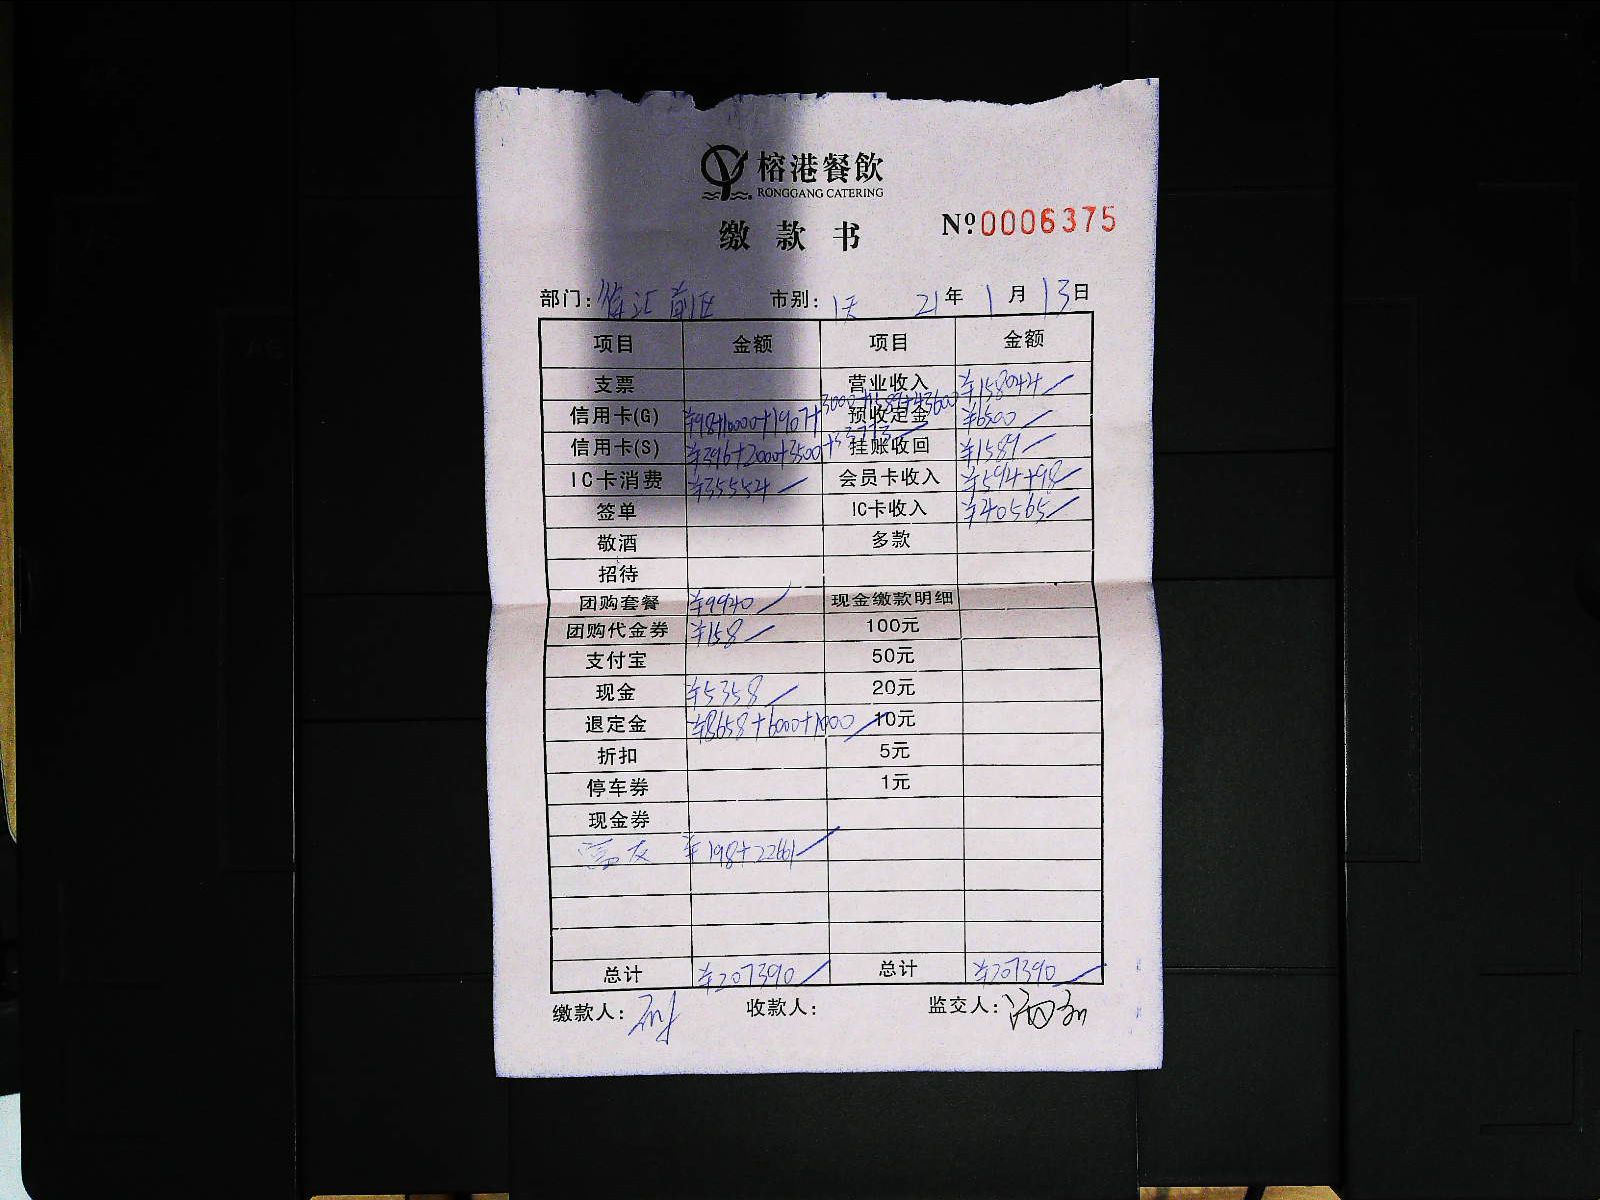 榕港餐飲
RONGGANG CATERING
缴款书 Nº0006375
部门: 前区 市别: 1天 21年1月13日
项目 金额 项目 金额
支票 营业收入 ¥158044
信用卡(G) ¥98+10000+1907+3000+1589+43600 预收定金 ¥6500
信用卡(S) ¥396+2000+3500+53773 挂账收回 ¥1589
IC卡消费 ¥35554 会员卡收入 ¥594+98
签单 IC卡收入 ¥40565
敬酒 多款
招待
团购套餐 ¥9920 现金缴款明细
团购代金券 ¥158 100元
支付宝 50元
现金 ¥5358 20元
退定金 ¥8658+6000+1000 10元
折扣 5元
停车券 1元
现金券
¥198+22661
总计 ¥207390 总计 ¥207390
缴款人: 收款人: 监交人: